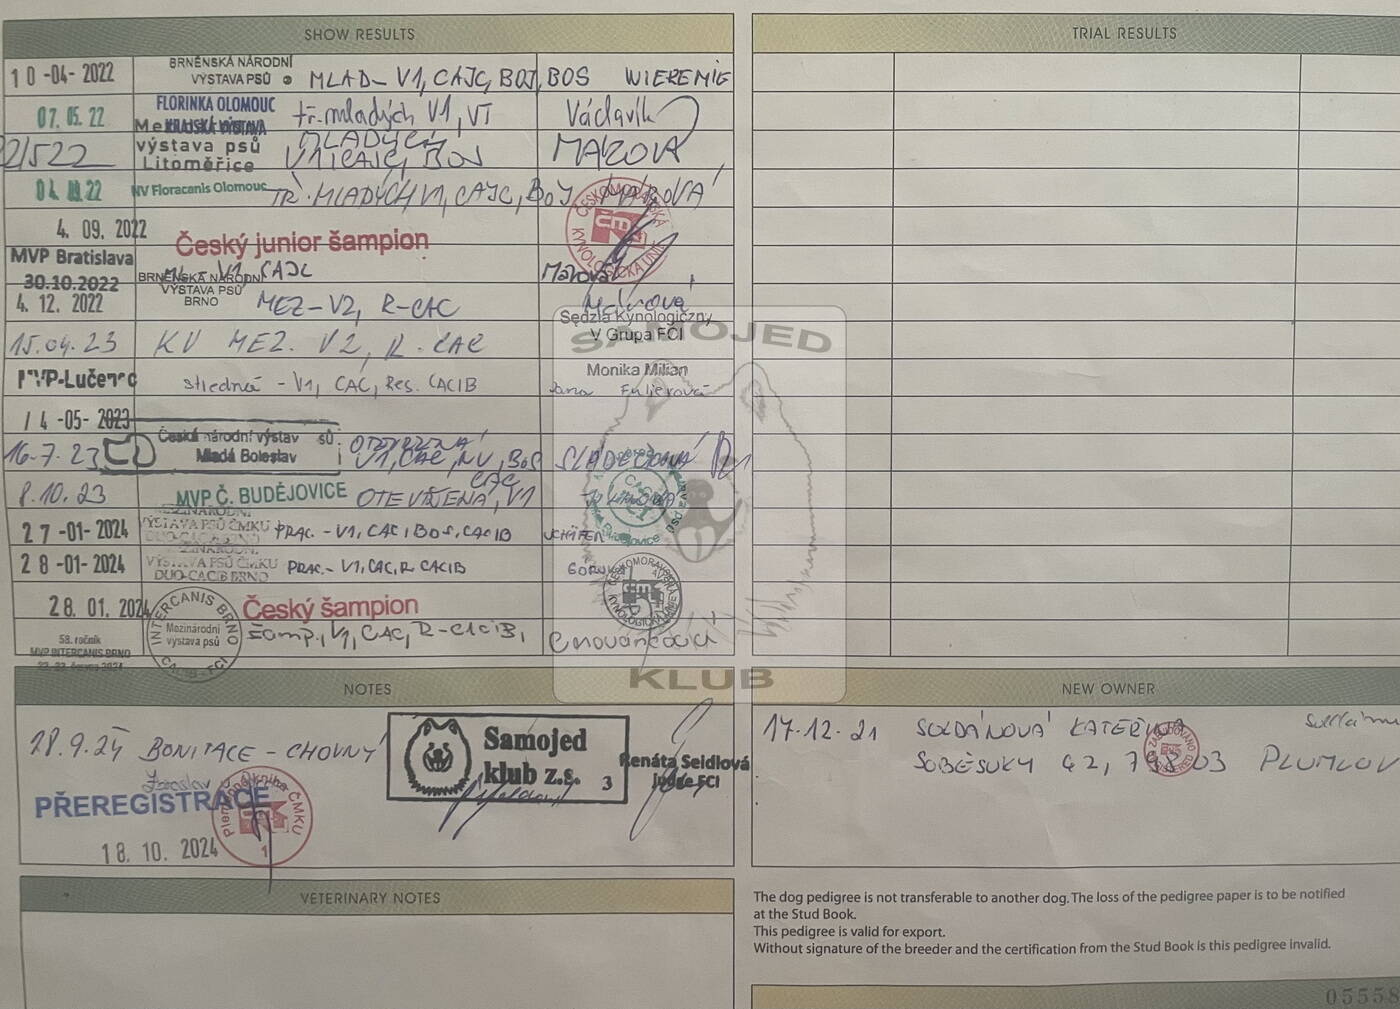 SHOW RESULTS
10-04-2022 BRNĚNSKÁ NÁRODNÍ VÝSTAVA PSŮ MLAD-V1, CAJC, BOJ, BOS WIEREMIE
07. 05. 22 FLORINKA OLOMOUC KRAJSKÁ VÝSTAVA tř. mladých V1, VT Václavík
výstava psů Litoměřice MLADÝCH V1, CAJC, BOS
NV Floracanis Olomouc TŘ. MLADÝCH V1, CAJC, BOJ
4. 09. 2022 Český junior šampion
ČESKOMORAVSKÁ KYNOLOGICKÁ UNIE
MVP Bratislava V1, CAJC
30.10.2022
4. 12. 2022 BRNĚNSKÁ NÁRODNÍ VÝSTAVA PSŮ BRNO MEZ-V2, R-CAC
15.04.23 KV MEZ. V2, R. CAC Sędzia Kynologiczny V Grupa FCI Monika Milian
MVP-Lučenec stredná - V1, CAC, Res. CACIB Jana
14-05-2023
16.7.23 Česká národní výstava psů Mladá Boleslav OTEVŘENÁ V1, CAC, NV, BOS SLÁDEČKOVÁ
8.10.23 MVP Č. BUDĚJOVICE OTEVŘENÁ, V1 CAC
27-01-2024 MEZINÁRODNÍ VÝSTAVA PSŮ ČMKU DUO-CACIB BRNO PRAC.-V1, CAC, BOS, CACIB
28-01-2024 MEZINÁRODNÍ VÝSTAVA PSŮ ČMKU DUO-CACIB BRNO PRAC.-V1, CAC, R CACIB
28. 01. 2024 Český šampion
ČESKOMORAVSKÁ KYNOLOGICKÁ UNIE
58. ročník MVP INTERCANIS BRNO
INTERCANIS BRNO Mezinárodní výstava psů CACIB - FCI
šamp, V1, CAC, R-CACIB,
SAMOJED
KLUB
TRIAL RESULTS
NOTES
28.9.24 BONITACE - CHOVNÝ
Samojed
klub z.s. 3
Renáta Seidlová
judge FCI
PŘEREGISTRACE
Plemenná kniha ČMKU 1
18. 10. 2024
NEW OWNER
17.12.21 SOLDÁNOVÁ KATEŘINA
SOBĚSUKY 42, 798 03 PLUMLOV
VETERINARY NOTES
The dog pedigree is not transferable to another dog. The loss of the pedigree paper is to be notified
at the Stud Book.
This pedigree is valid for export.
Without signature of the breeder and the certification from the Stud Book is this pedigree invalid.
05558